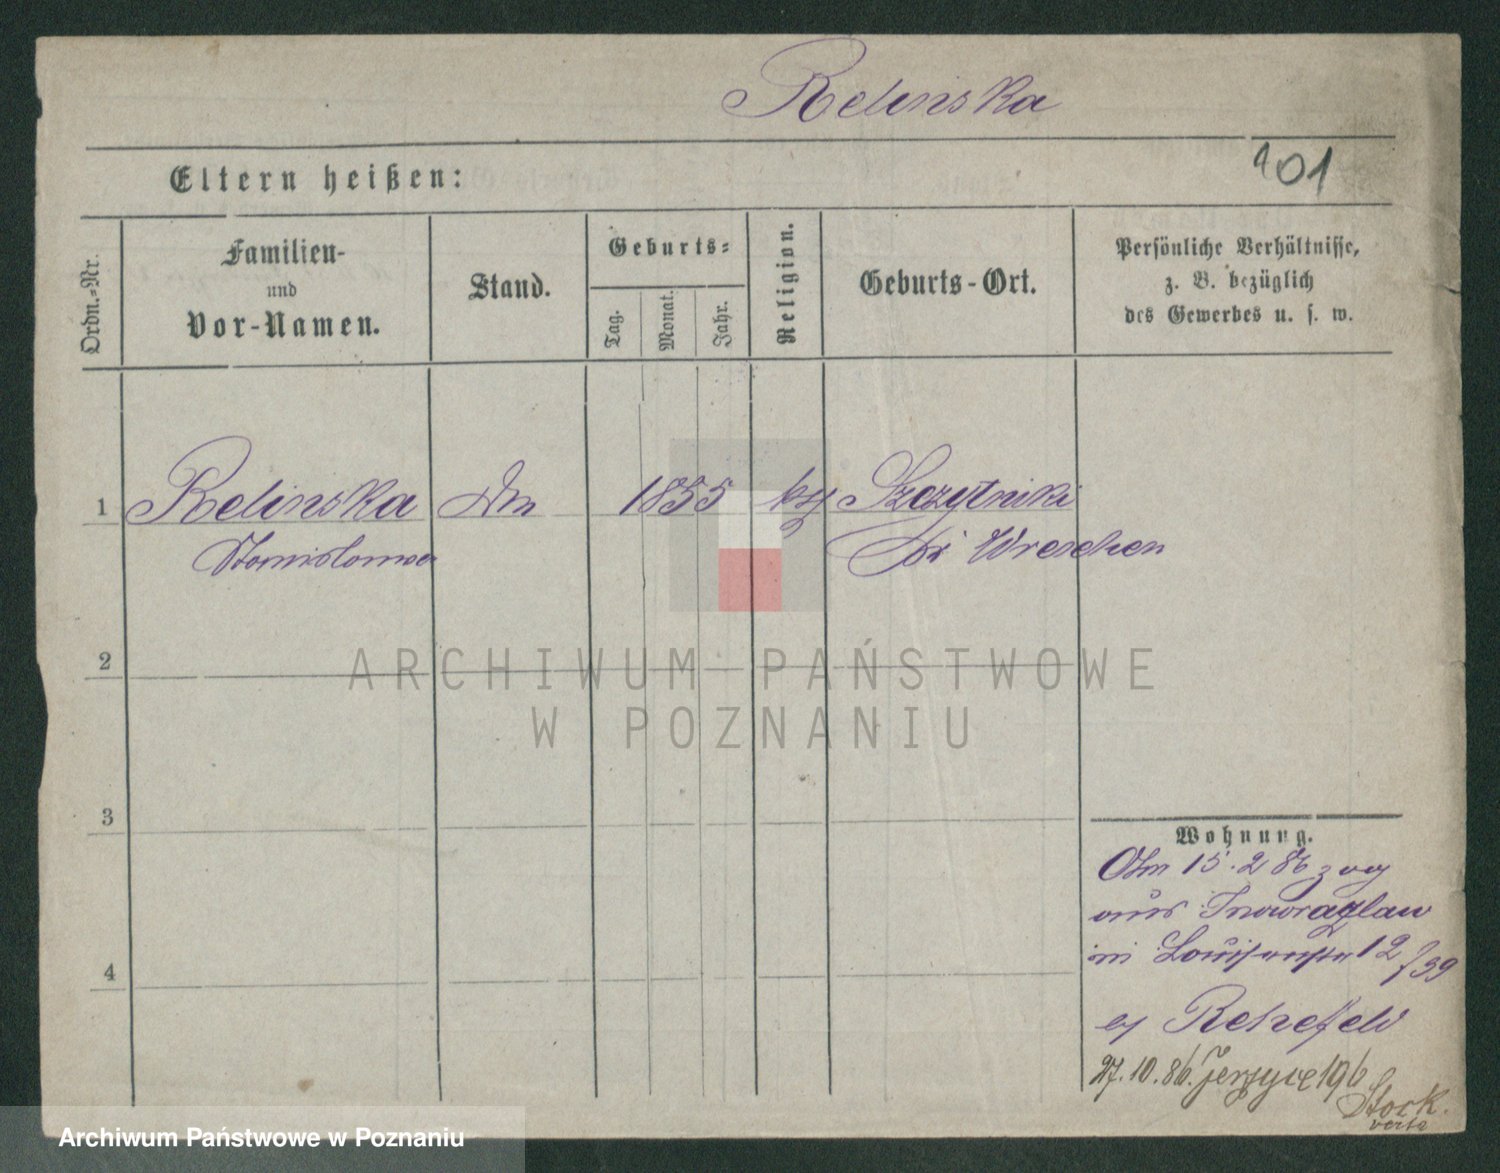 Relinska
101
Eltern heißen:
Ordn.=Nr.
Familien-
und
Vor-Namen.
Stand.
Geburts=
Tag.
Monat.
Jahr.
Religion.
Geburts-Ort.
Persönliche Verhältnisse,
z. B. bezüglich
des Gewerbes u. s. w.
1 Relinska 1855 Szczytniki
Stanislawa bei Wreschen
2
ARCHIWUM PAŃSTWOWE
W POZNANIU
3
Wohnung.
Am 15.2 86 zog
aus Inowrazlaw
in Louisenstr 12 /39
Rehefeld
4
27.10.86. Jerzyce 196
Stock.
verte
Archiwum Państwowe w Poznaniu